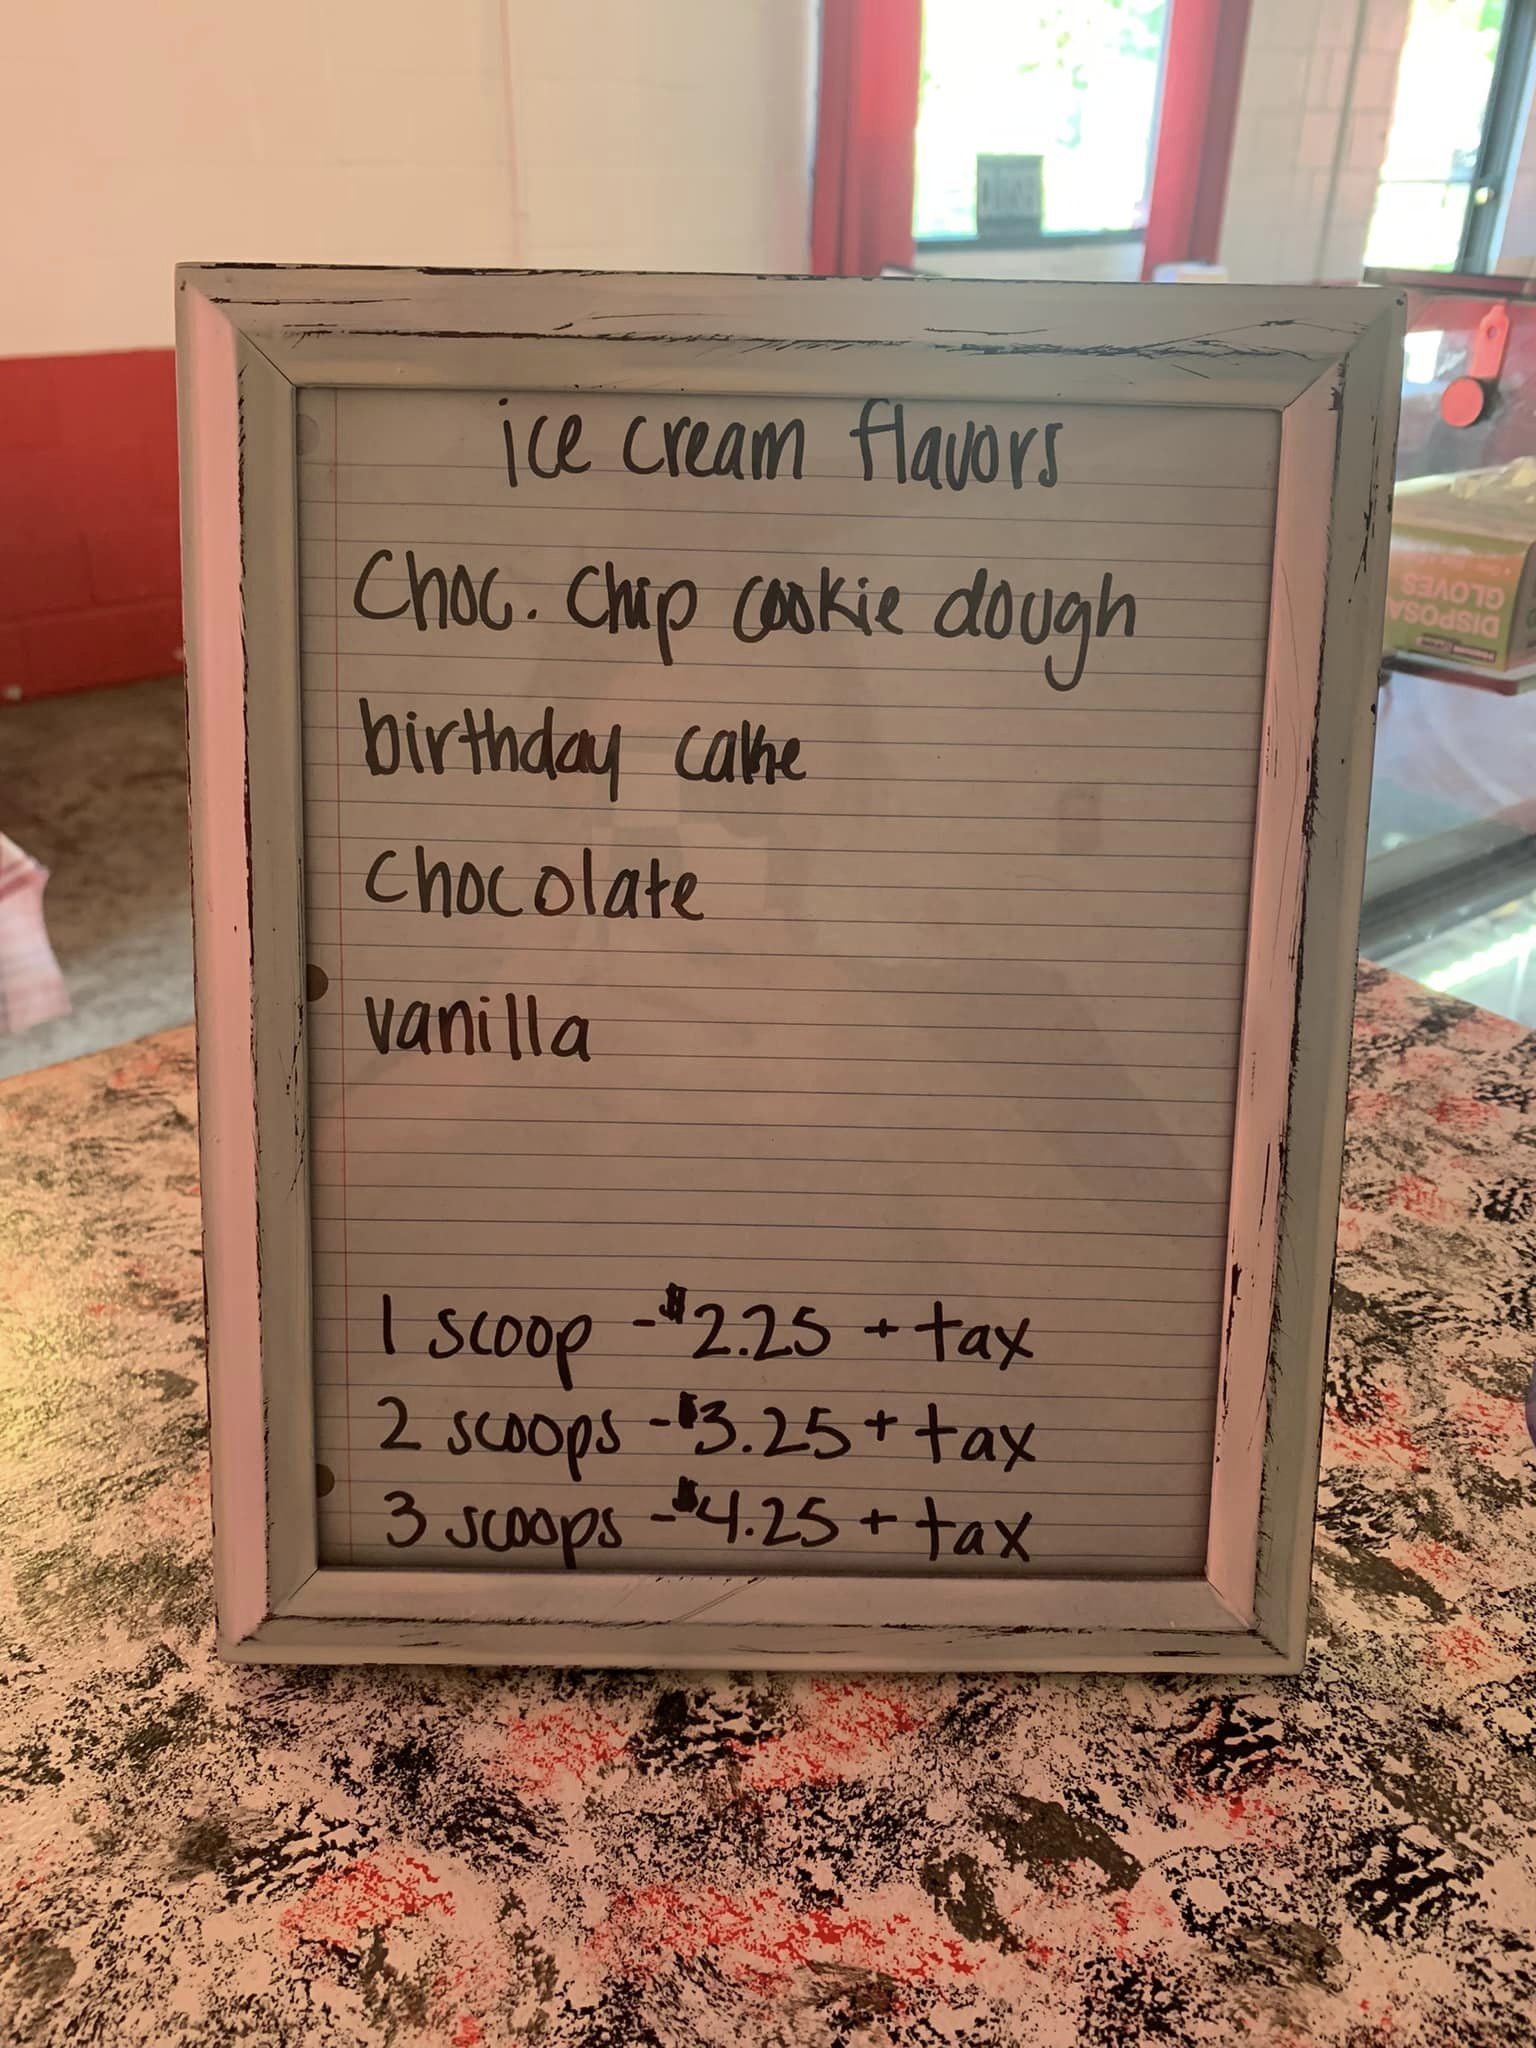 ice cream flavors
Choc. Chip cookie dough
birthday cake
Chocolate
vanilla
1 scoop - $2.25 + tax
2 scoops - $3.25 + tax
3 scoops - $4.25 + tax
GLOVES